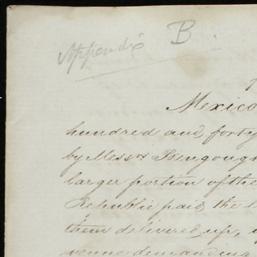 Appendix B.
Mexico
hundred and forty
by Messrs
larger portion of the
Republic paid the
them delivered up,
demanding